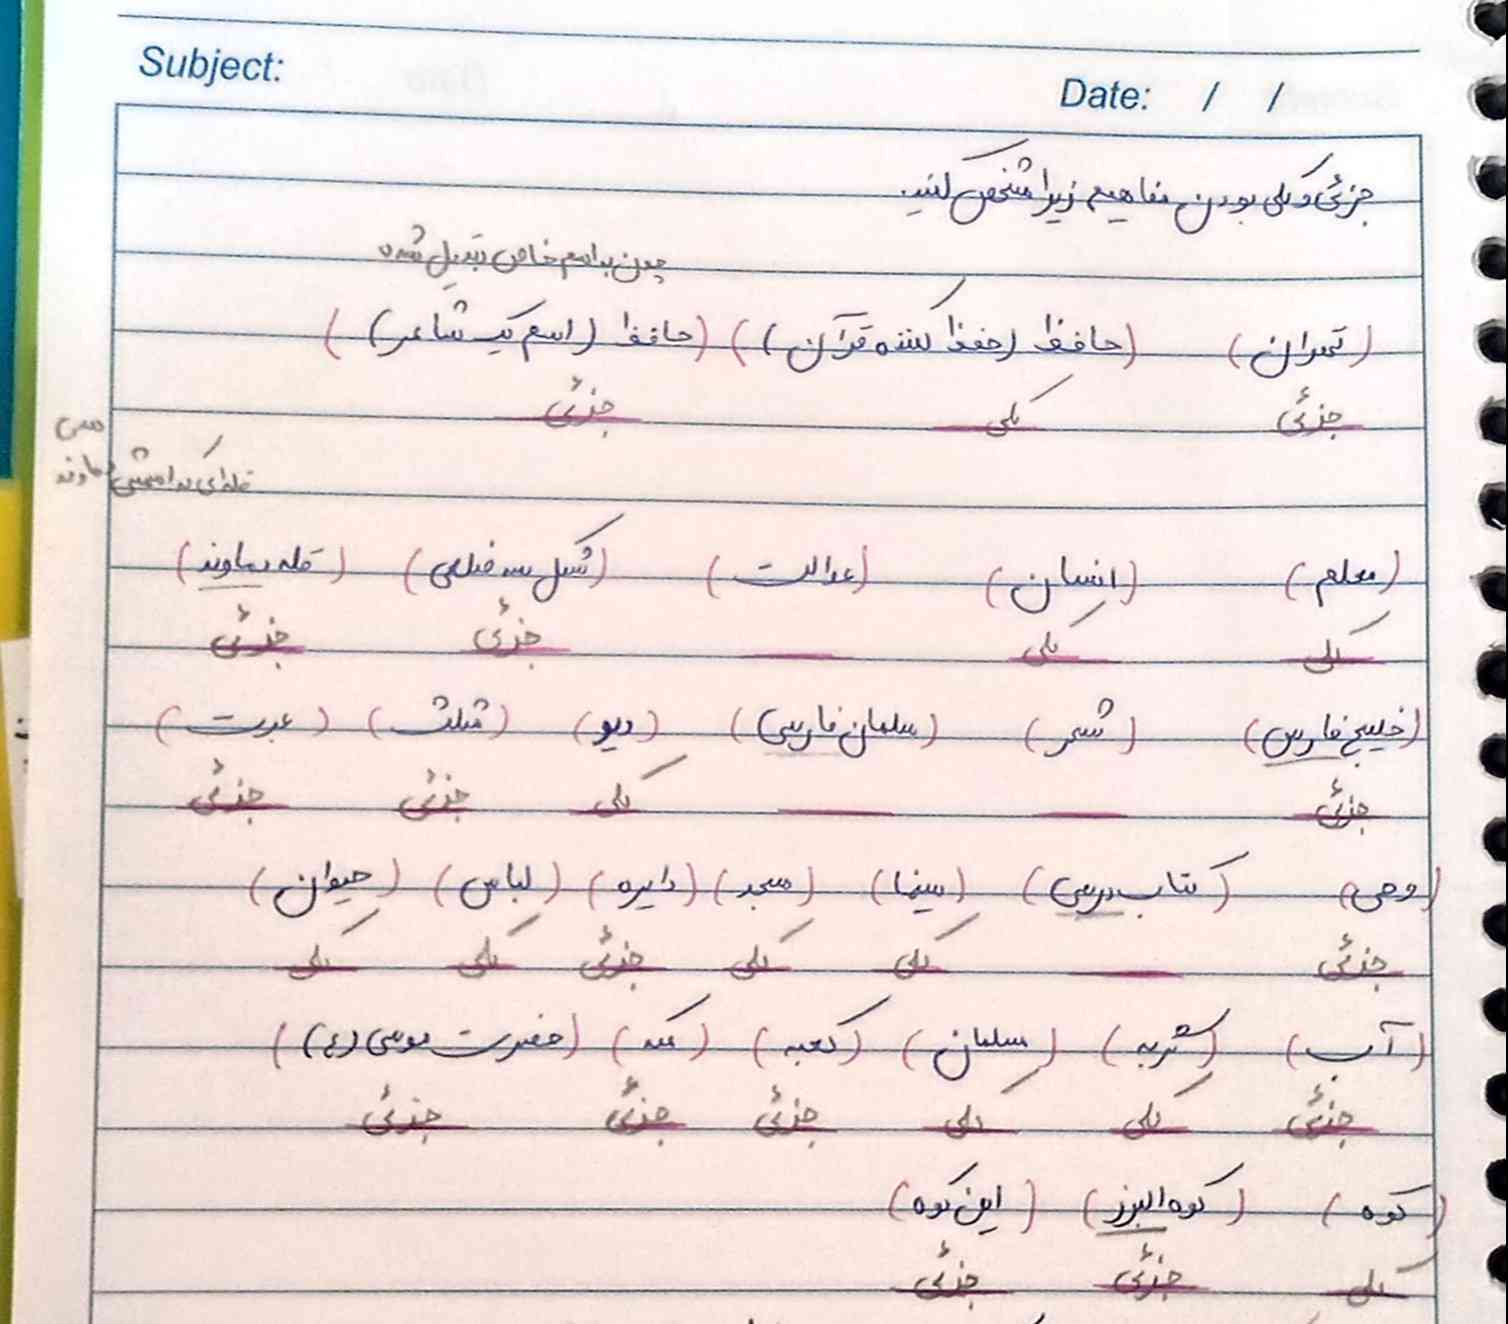 Subject:
Date: / /
جزئی و کلی بودن مفاهیم زیر را مشخص کنید.
چون به اسم خاص تبدیل شده
(تهران) (حافظ (حفظ کننده قرآن)) (حافظ (اسم یک شاعر))
جزئی کلی جزئی
قله‌ای به اسم دماوند
(معلم) (انسان) (عدالت) (شکل سه ضلعی) (قله دماوند)
کلی کلی جزئی جزئی
(خلیج فارس) (شهر) (سلمان فارسی) (دیو) (مثلث) (عبرت)
جزئی کلی جزئی جزئی
(وحی) (کتاب درسی) (سینما) (مسجد) (دایره) (لباس) (حیوان)
جزئی کلی کلی جزئی کلی کلی
(آب) (گربه) (سلمان) (کعبه) (مکه) (حضرت موسی (ع))
جزئی کلی کلی جزئی جزئی جزئی
(کوه) (کوه البرز) (این کوه)
کلی جزئی جزئی